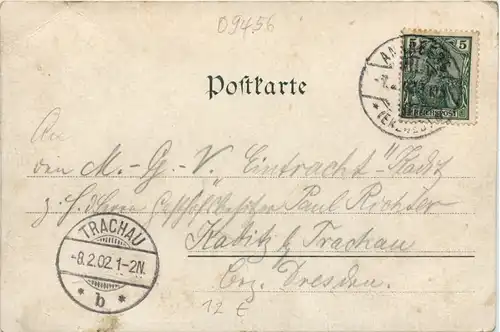 D9456
5 5
Postkarte
An
den M.-G.-V. "Eintracht" Kaditz
z. H. d. Herrn Paul Richter
Kaditz b/ Trachau
Bez. Dresden.
TRACHAU
-8.2.02.1-2N.
* b *
12 €